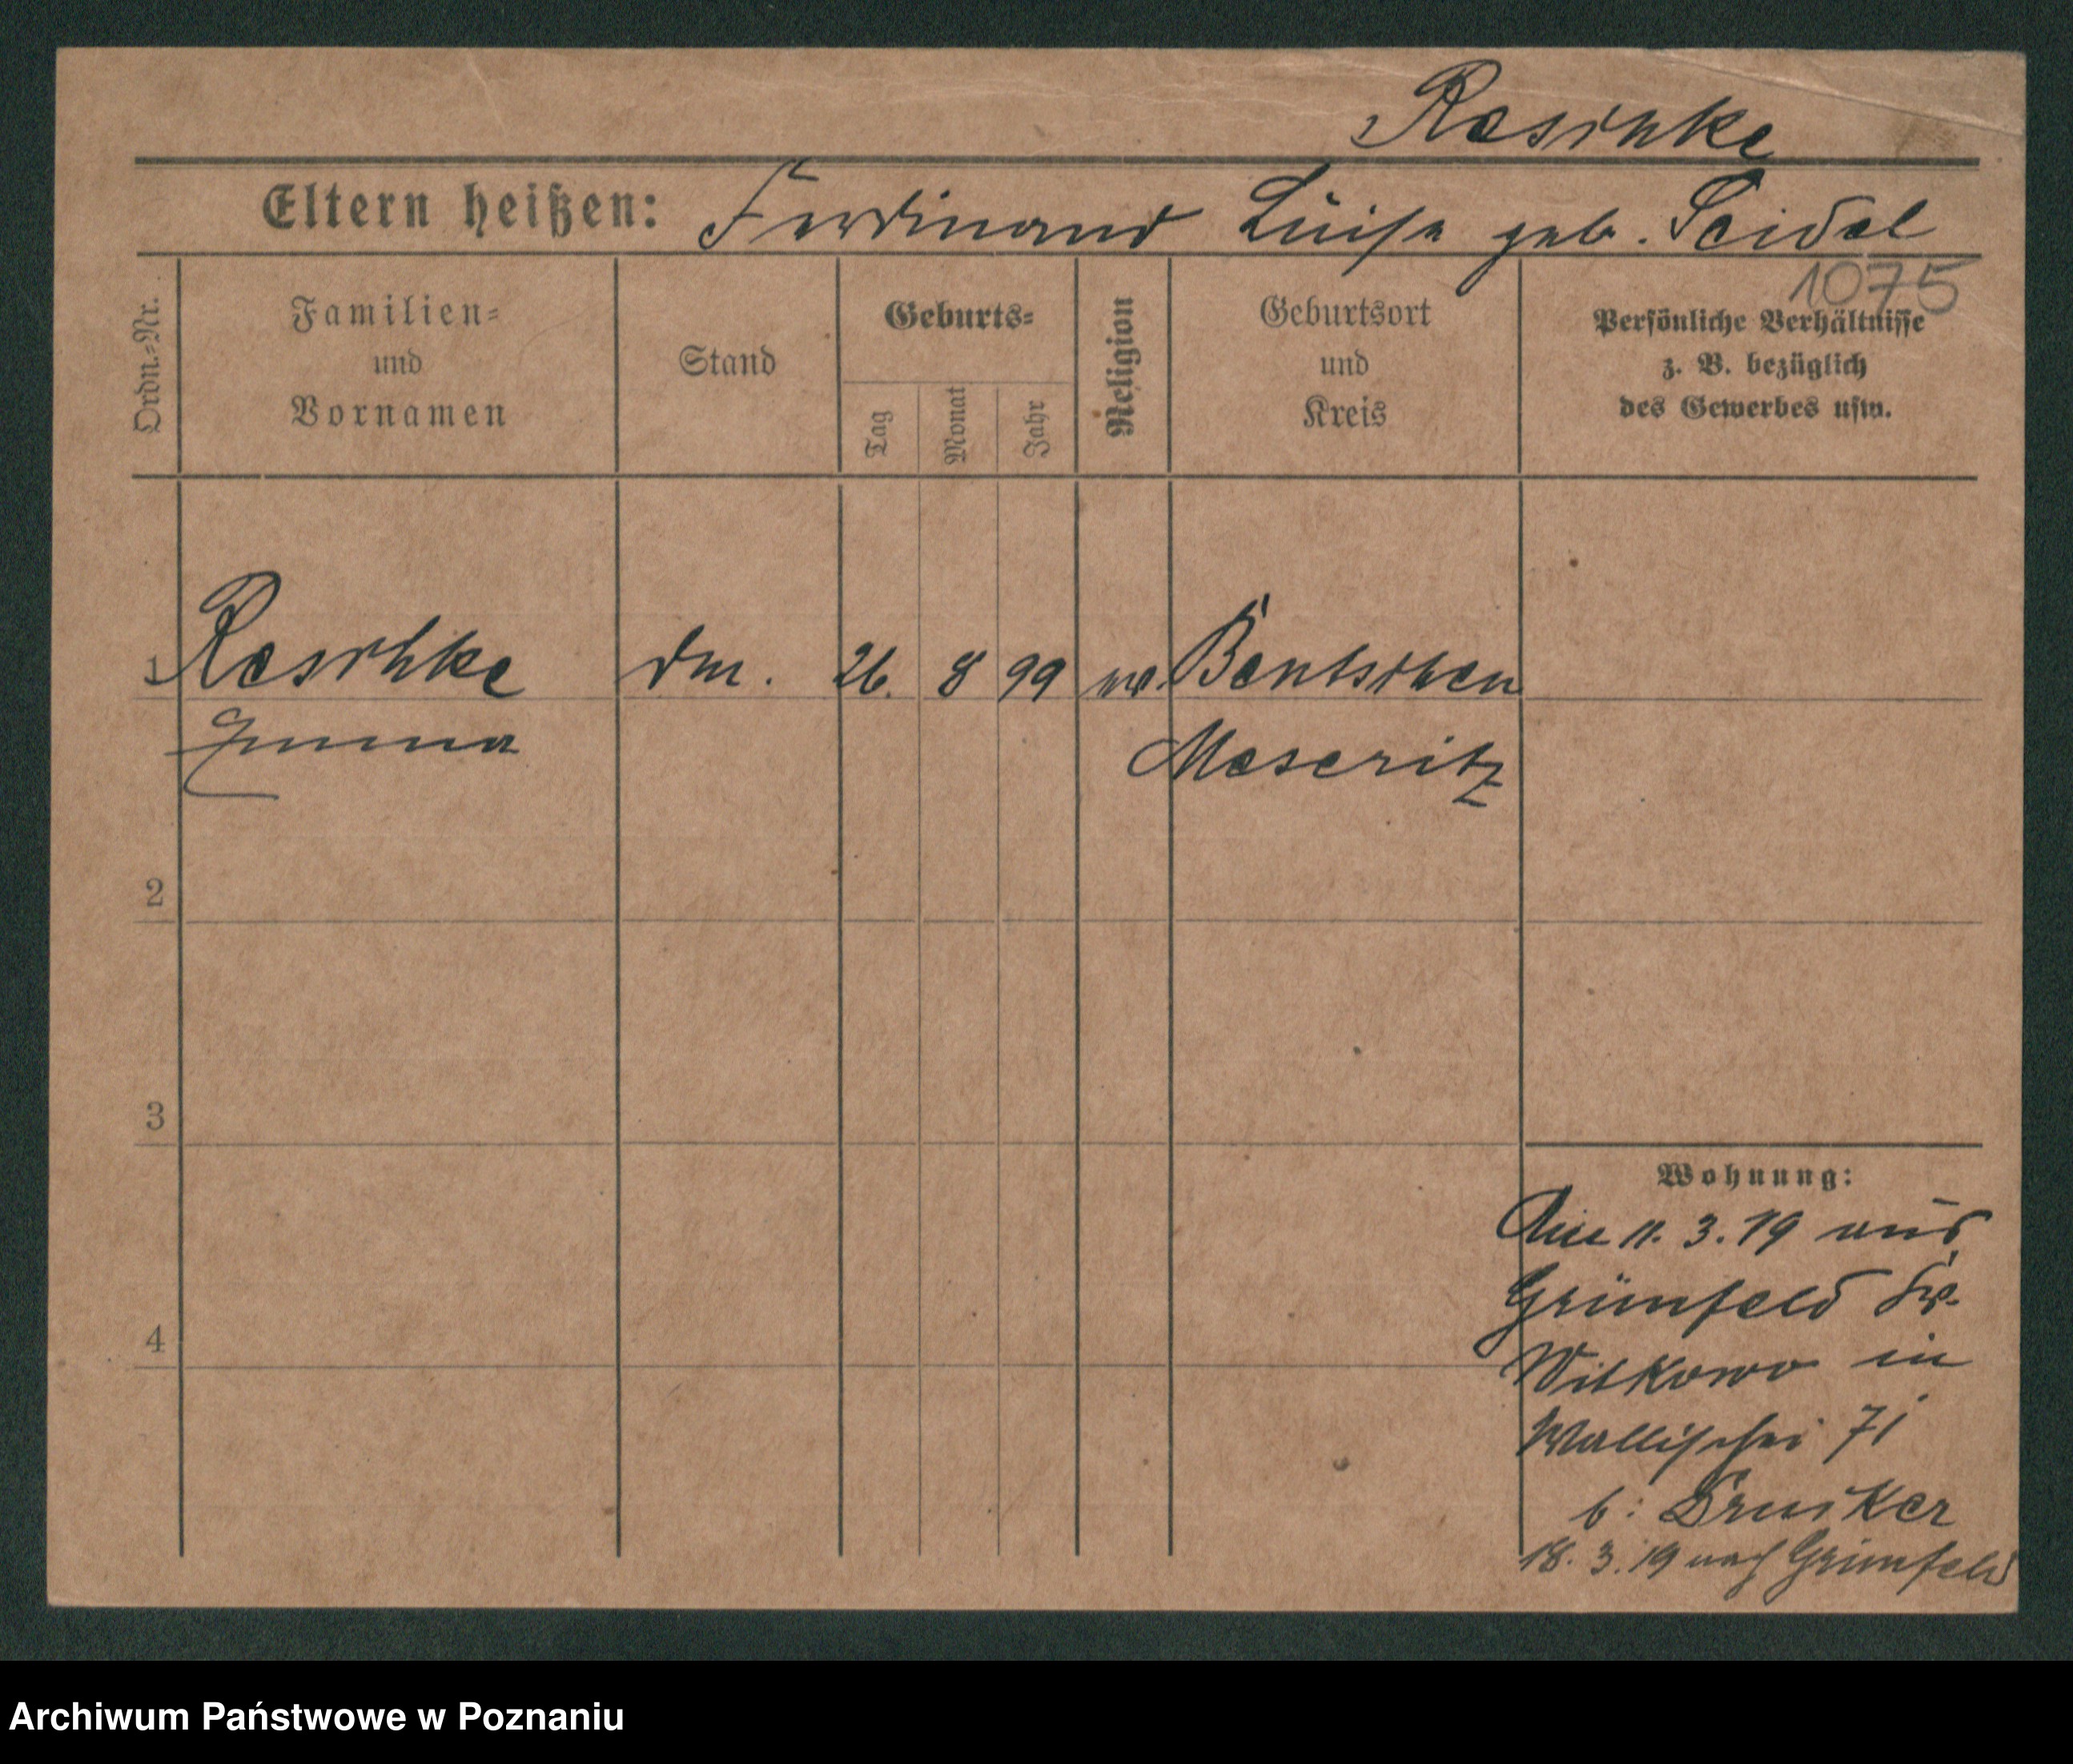 Reschke
Eltern heißen: Ferdinand Luise geb. Seidel
1075
Ordn.-Nr.
Familien-
und
Vornamen
Stand
Geburts-
Tag
Monat
Jahr
Religion
Geburtsort
und
Kreis
Persönliche Verhältnisse
z. B. bezüglich
des Gewerbes usw.
1 Reschke 26. 8 99 Bentschen
Emma Meseritz
2
3
4
Wohnung:
11. 3. 19 aus
Grünfeld Kr.
Witkowo in
Wallischei 71
b: Drucker
18. 3. 19 nach Grünfeld
Archiwum Państwowe w Poznaniu